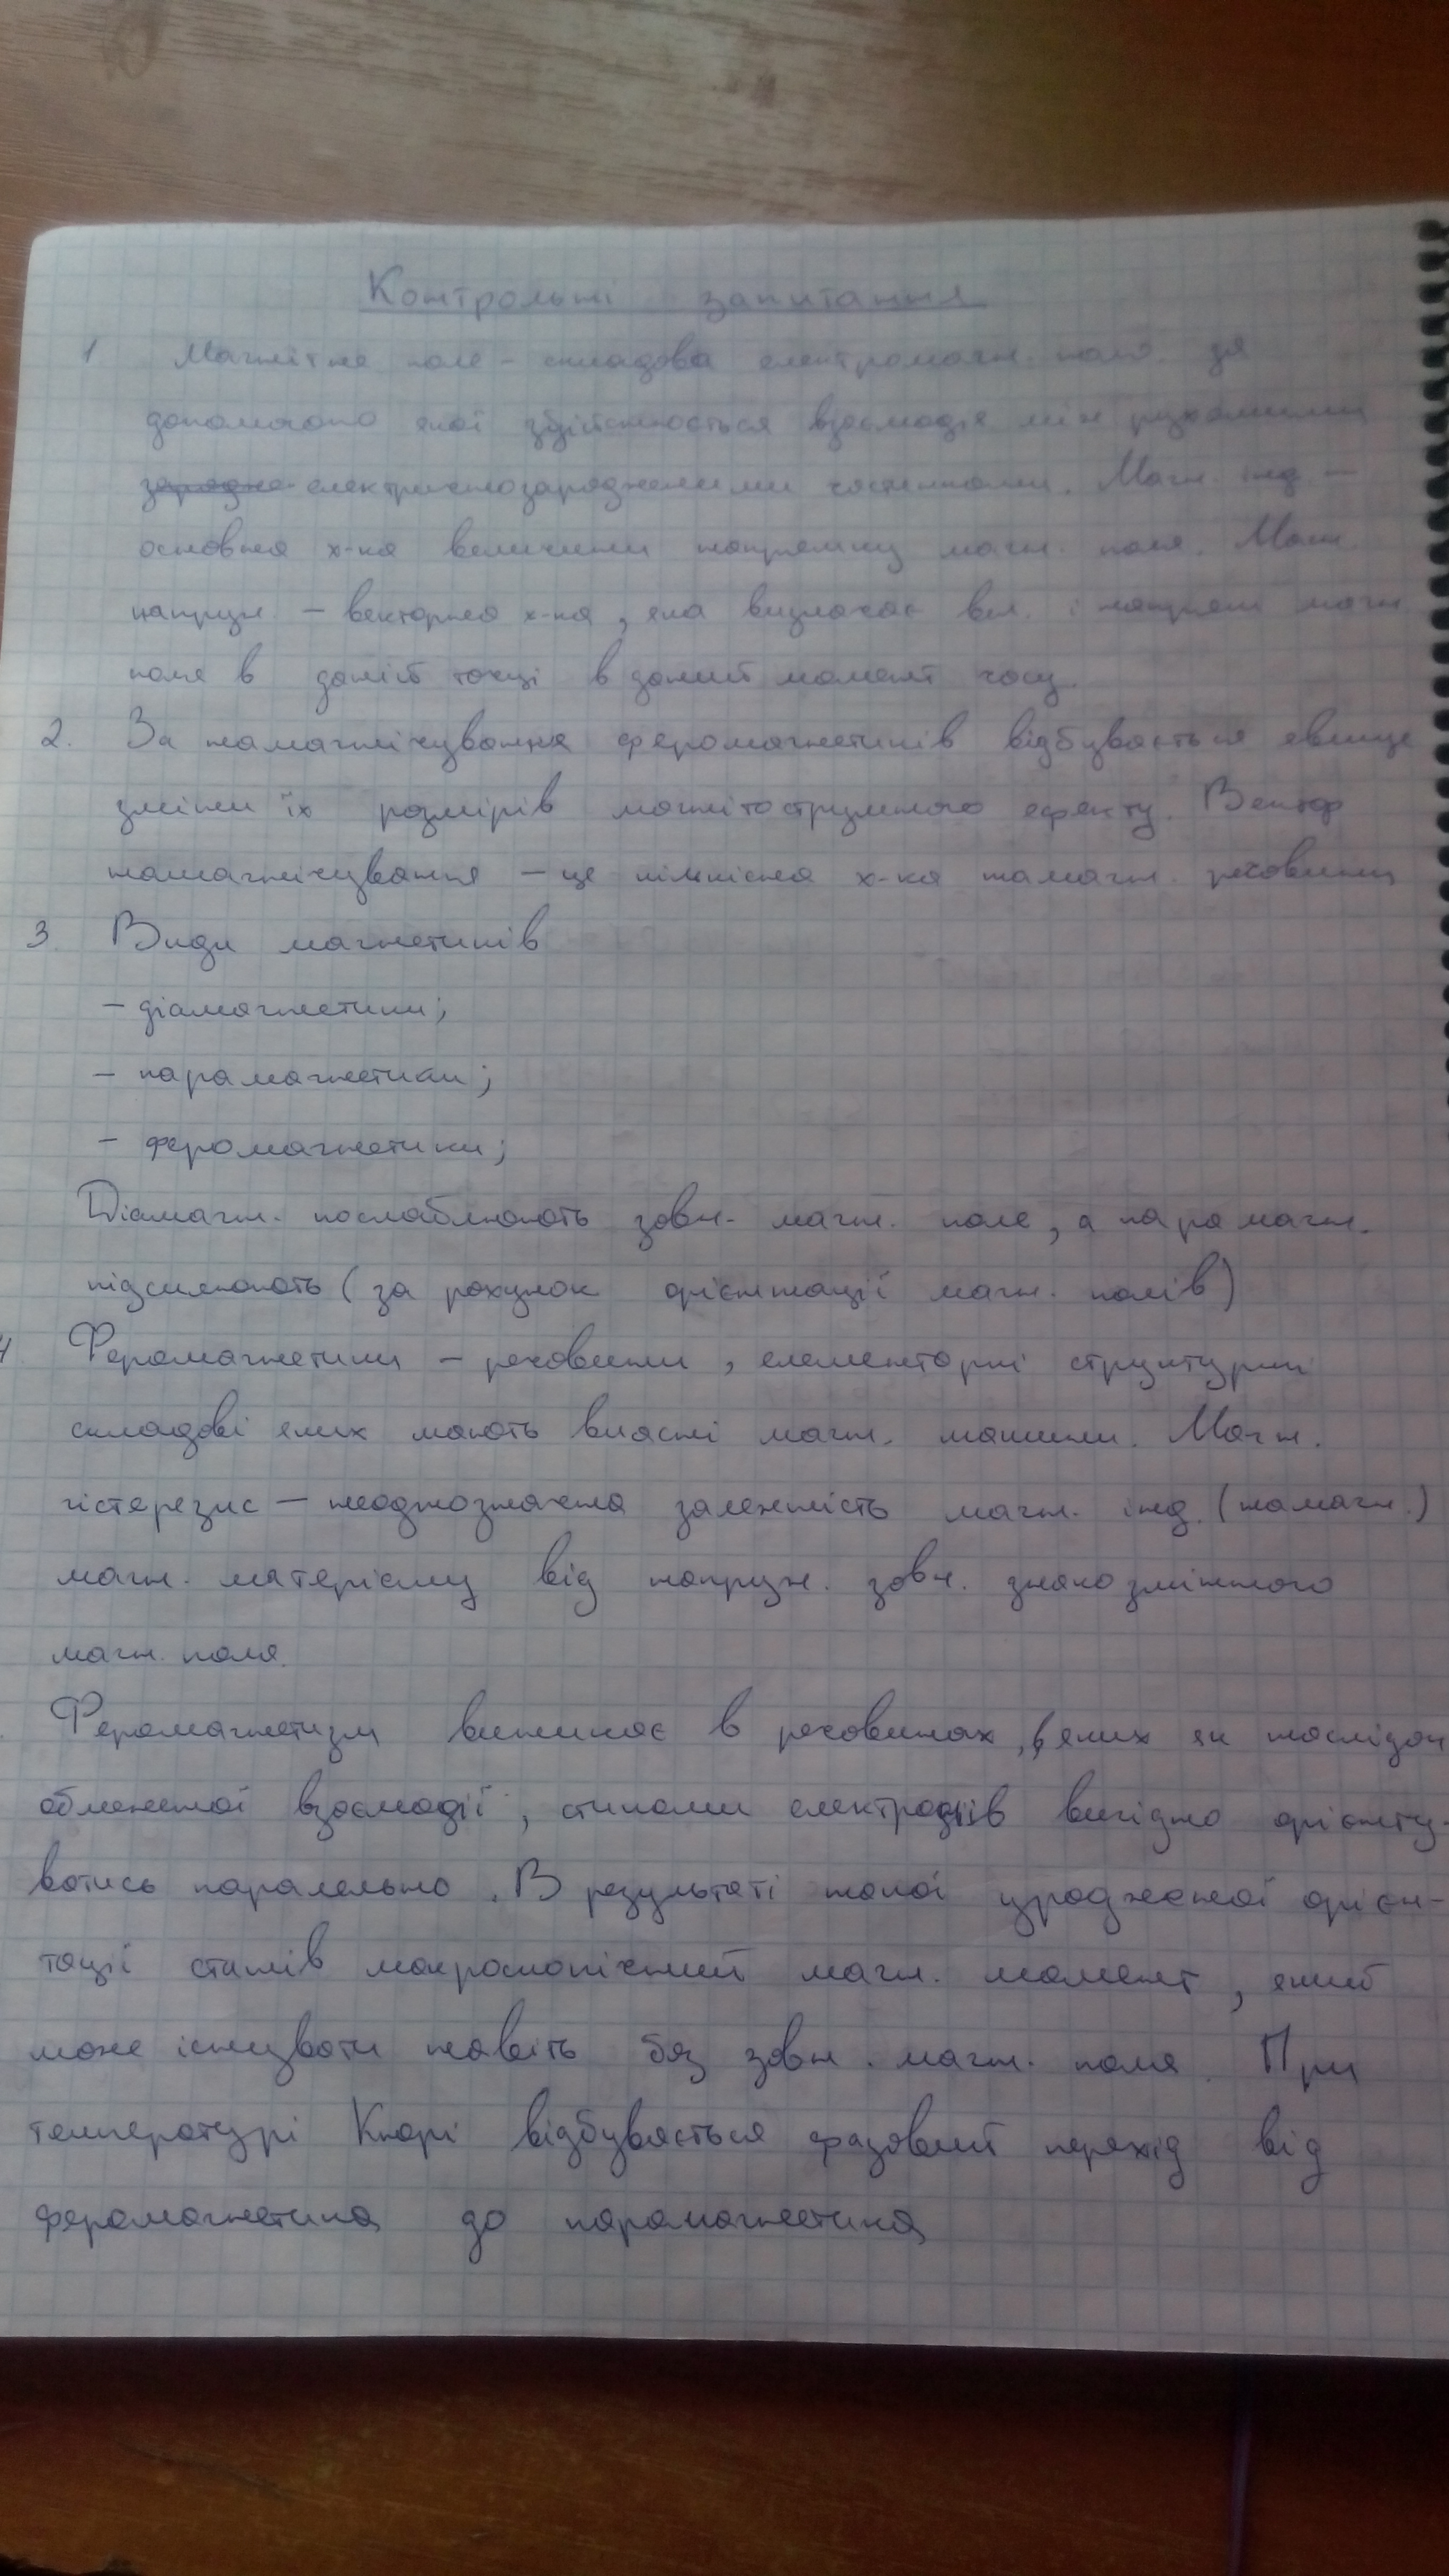 Контрольні запитання
1 Магнітне поле – складова електромагн. поля за
допомогою якої здійснюється взаємодія між рухомими
зарядже електричнозарядженими частинками. Магн. інд. –
основна х-ка величини напрямку магн. поля. Магн
напруж. – векторна х-ка, яка визначає вел. і напрям магн
поля в даній точці в даний момент часу.
2. За намагнічування феромагнетиків відбувається явище
зміни їх розмірів магнітострумного ефекту. Вектор
намагнічування – це кількісна х-ка намагн. речовини
3. Види магнетиків
– діамагнетики;
– парамагнетики;
– феромагнетики;
Діамагн. послаблюють зовн. магн. поле, а парамагн.
підсилюють (за рахунок орієнтації магн. полів)
4. Феромагнетики – речовини, елементарні структурні
складові яких мають власні магн. Магн.
гістерезис – неоднозначна залежність магн. інд. (намагн.)
магн. матеріалу від напруж. зовн. знакозмінного
магн. поля.
Феромагнетизм виникає в речовинах, в яких як наслідок
обмеженої взаємодії, спинами електронів вигідно орієнту-
ватись паралельно. В результаті такої уродженої орієн-
тації спинів макроскопічний магн. момент, який
може існувати навіть без зовн. магн. поля. При
температурі Кюрі відбувається фазовий перехід від
феромагнетика до парамагнетика